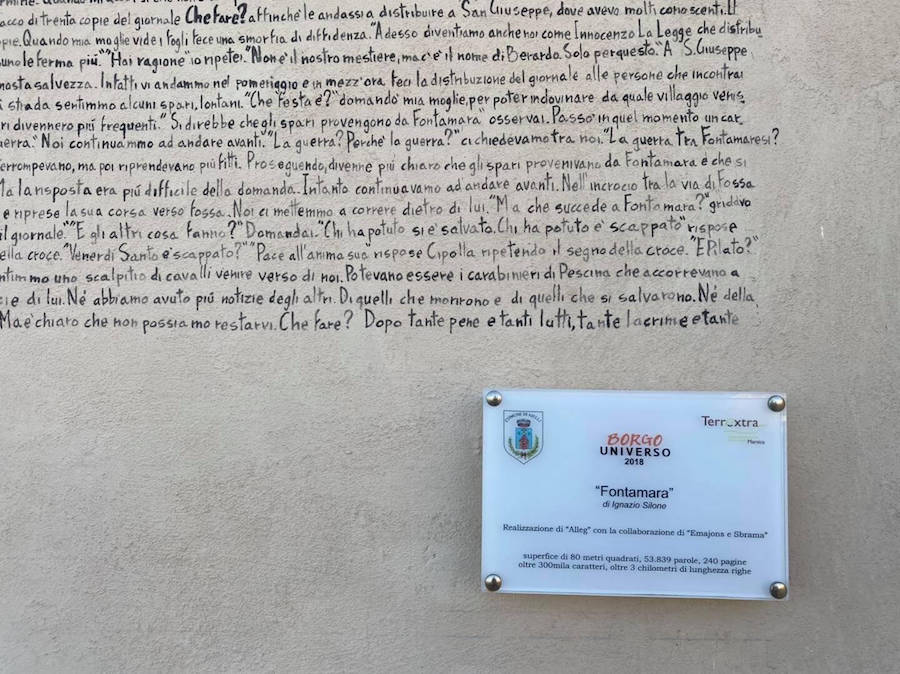 acco di trenta copie del giornale Che fare? affinché le andassi a distribuire a San Giuseppe, dove avevo molti conoscenti. Il
opie. Quando mia moglie vide i fogli fece una smorfia di diffidenza. "Adesso diventiamo anche noi come Innocenzo La Legge che distribu
uno le ferma più." "Hai ragione" io ripetei. "Non è il nostro mestiere, ma c'è il nome di Berardo. Solo per questo." A S. Giuseppe
nosta salvezza. Infatti vi andammo nel pomeriggio e in mezz'ora feci la distribuzione del giornale alle persone che incontrai
strada sentimmo alcuni spari, lontani. "Che festa è?" domandò mia moglie, per poter indovinare da quale villaggio venis
ri divennero più frequenti. "Si direbbe che gli spari provengono da Fontamara" osservai. Passò in quel momento un car
uerra." Noi continuammo ad andare avanti. "La guerra? Perché la guerra?" ci chiedevamo tra noi. "La guerra tra Fontamaresi?
terrompevano, ma poi riprendevano più fitti. Proseguendo, divenne più chiaro che gli spari provenivano da Fontamara e che si
Ma la risposta era più difficile della domanda. Intanto continuavamo ad andare avanti. Nell'incrocio tra la via di Fossa
e riprese la sua corsa verso Fossa. Noi ci mettemmo a correre dietro di lui. "Ma che succede a Fontamara?" gridavo
il giornale." "E gli altri cosa fanno?" Domandai. "Chi ha potuto si è salvato. Chi ha potuto è scappato" rispose
ella croce. "Venerdì Santo è scappato?" "Pace all'anima sua" rispose Cipolla ripetendo il segno della croce. "E Pilato?"
ntimmo uno scalpitio di cavalli venire verso di noi. Potevano essere i carabinieri di Pescina che accorrevano a
cie di lui. Né abbiamo avuto più notizie degli altri. Di quelli che morirono e di quelli che si salvarono. Né della
Ma è chiaro che non possiamo restarvi. Che fare? Dopo tante pene e tanti lutti, tante lacrime e tante
COMUNE DI AIELLI
TerrExtra
Marsica
BORGO
UNIVERSO
2018
"Fontamara"
di Ignazio Silone
Realizzazione di "Alleg" con la collaborazione di "Emajons e Sbrama"
superfice di 80 metri quadrati, 53.839 parole, 240 pagine
oltre 300mila caratteri, oltre 3 chilometri di lunghezza righe